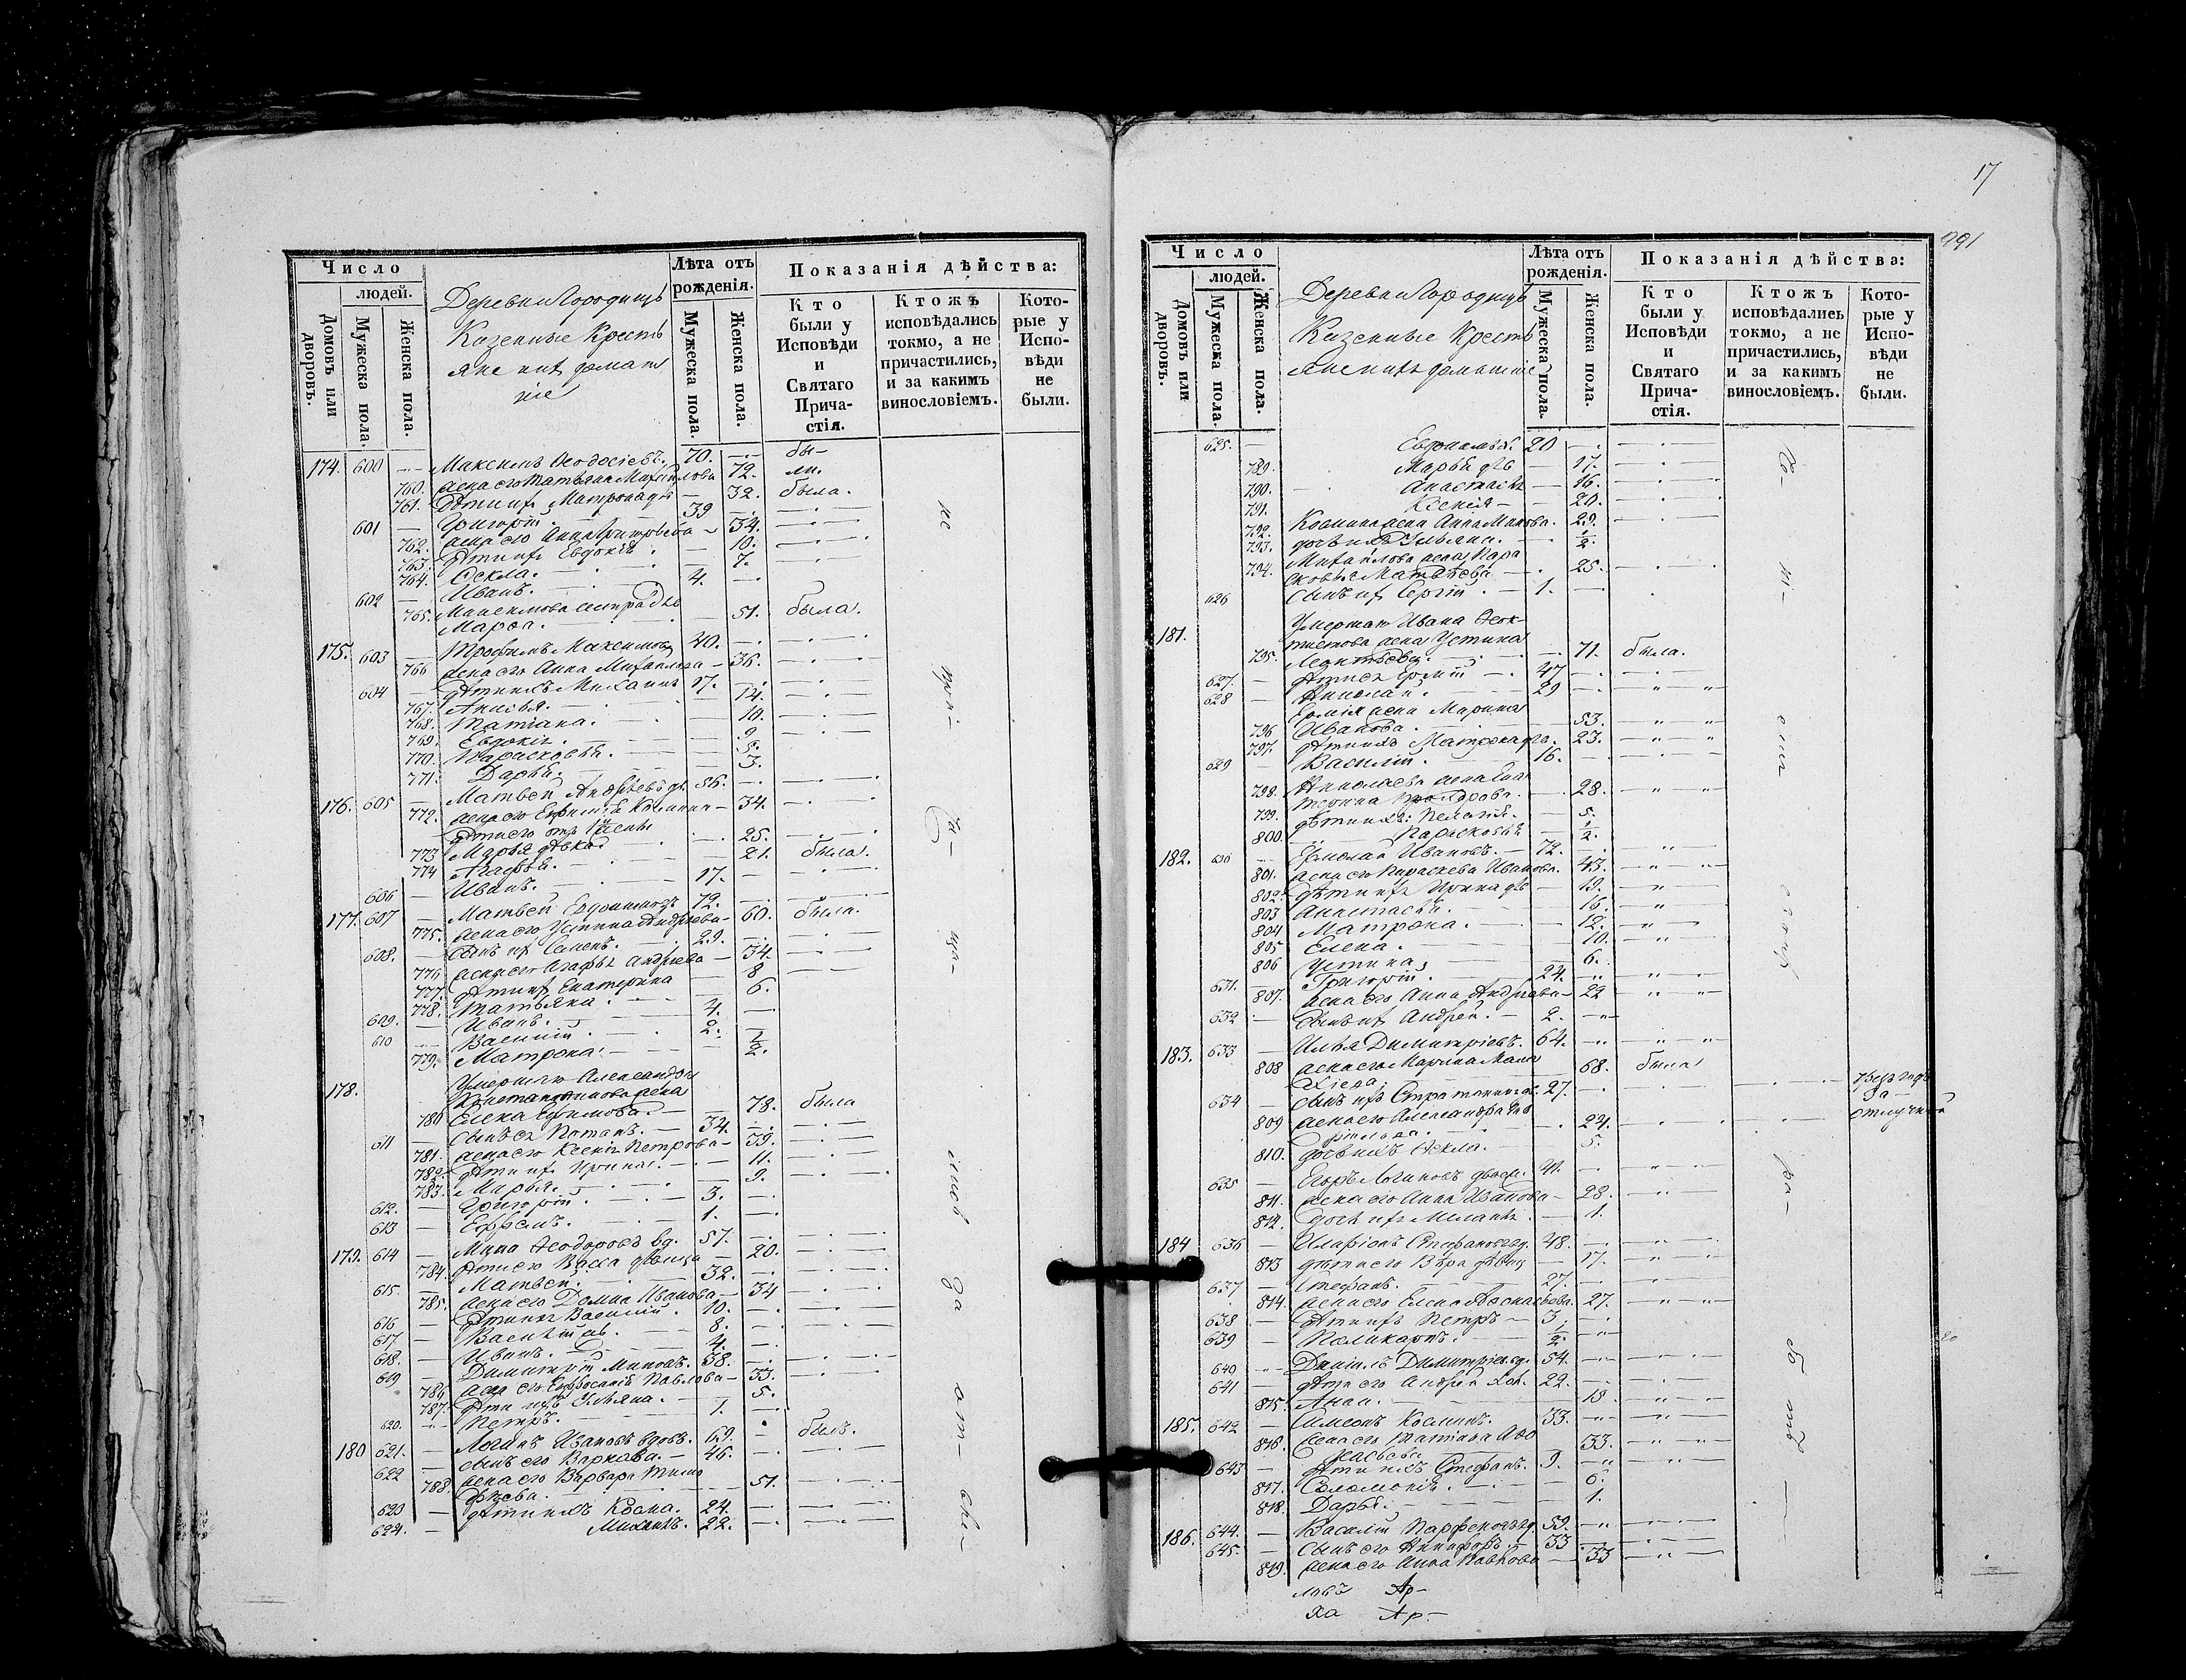 Число
людей.
Домовъ или дворовъ.
Мужеска пола.
Женска пола.
Деревни Городищъ
Казенные Кресть
яне ихъ домаш
ніе
Лѣта отъ рожденія.
Мужеска пола.
Женска пола.
Показанія дѣйства:
Кто были у Исповѣди и Святаго Прича-стія.
Ктожъ исповѣдались токмо, а не причастились, и за какимъ винословіемъ.
Кото-рые у Испо-вѣди не были.
174. 600 — Максимъ Ѳеодосіевъ. 70. — бы-
760. жена его Татьяна Михайлова 72. ли.
761. Дѣти ихъ Матрона дѣв — 32. была.
601 — Григорій. 39 —
762. жена его Анна Дмитріева — 34.
763. Дѣти ихъ Евдокія — 10.
764. Ѳекла. — 7.
602 — Иванъ. 4. —
765. Максимова сестра дѣв
Марѳа. 51. была.
175. 603 — Трофимъ Максимовъ 40. —
766 жена его Анна Михайлова — 36.
604 — Дѣти ихъ Михаилъ 17. —
767. Анисья. 14.
768. Татіана. 10.
769. Евдокія. 9
770. Парасковья. 5.
771. Дарья. 3.
176. 605 — Матвей Андреевъ 56. —
772. жена его Ефимія Козмина — 34.
дѣти его отъ 1й жены
773 Марья дѣвка 25.
774 Агафья. 21. была.
606 — Иванъ. 17. —
177. 607 — Матвей Евдокимовъ 72. —
775. жена его Устина Андреева — 60. была.
608. — сынъ ихъ Семенъ. 29. —
776 жена его Агафья Андреева — 34.
777. Дѣти ихъ Екатерина 8
778. Татьяна. 6.
609. — Иванъ. 4. —
610 — Василій. 2. —
779. Матрона. ½.
178. Умершаго Александра
Константинова жена
780 Елена Ефимова. 78. была
611 — сынъ ея Потапъ. 34. —
781. жена его Ксенія Петрова — 39.
782. Дѣти ихъ Ирина. 11.
783. Марья. 9.
612. — Григорій. 3. —
613 — Ефремъ. 1. —
179. 614 — Мина Ѳеодоровъ вд. 57. —
784. Дѣти его Васса дѣвица 20.
615. — Матвей. 32. —
785. жена его Домна Иванова — 34
616 — Дѣти ихъ Василій. 10. —
617 — Василій. 8. —
618. — Иванъ. 4. —
619 — Димитрій Миновъ. 38. —
786 жена его Евфросинія Павлова — 33.
787. Дѣти ихъ Ульяна. 5.
620. — Петръ. 1. —
180 621. — Логинъ Ивановъ вдовъ. 69. — былъ.
622 — сынъ его Варнава. 46. —
788. жена его Варвара Тимо
фѣева. 51.
623 — дѣти ихъ Косма. 24. —
624. — Михаилъ. 22. —
не
при-
ча-
ща-
лись
за
от-
17
291
Число
людей.
Домовъ или дворовъ.
Мужеска пола.
Женска пола.
Деревни Городищъ
Казенные Кресть
яне ихъ домашніе
Лѣта отъ рожденія.
Мужеска пола.
Женска пола.
Показанія дѣйства:
Кто были у Исповѣди и Святаго Прича-стія.
Ктожъ исповѣдались токмо, а не причастились, и за какимъ винословіемъ.
Кото-рые у Испо-вѣди не были.
625. — Евдокимъ. 20 —
789. Марья дѣв — 17.
790. Анастасія — 16.
791. Ксенія — 20.
792. Космина жена Анна Макова. 29.
793. дочь ихъ Ульяна. ½.
794. Михайлова жена Пара
сковья Матвѣева — 25.
626 сынъ ихъ Сергій. 1. —
181. Умершаго Ивана Ѳеок-
тистова жена Устина
795. Леонтьева. 71. была.
627. — дѣти ея Ермій 47 —
628 — Николай. 29 —
Ермія жена Марина
796 Иванова. 53.
797. дѣти ихъ Матрона дѣв. 23.
629 — Василій. 16. —
Николаева жена Ека
798. терина 28.
799. дѣти ихъ: Пелагія. 5.
800. Парасковья ½.
182. 630 — Ермолай Ивановъ. 72. —
801. жена его Параскева Иванова. 43.
802. дѣти ихъ Ирина дѣв — 19.
803 Анастасія. 16.
804 Матрона. 12.
805 Елена. 10.
806 Устина, 6.
631. — Григорій. 24. —
807. жена его Анна Андреева — 22
632 — сынъ ихъ Андрей. 2. —
183. 633 — Илья Димитріевъ. 64. —
808 жена его Марина Мала
хіева, 68. была
634 — сынъ ихъ Стратоникъ 27. —
за
отлучкой
809 жена его Александра Гав
ріилова. 24.
810. дочь ихъ Ѳекла. 5.
635 — Егоръ Логиновъ 41. —
811. жена его Анна Иванова — 28.
812. дочь ихъ Меланія. 1.
184 636 — Иларіонъ Стефановъ вд. 48. —
813 дѣти его Вѣра дѣвиц — 17.
637 — Стефанъ. 27. —
814. жена его Елена Аѳанасьева. 27.
638 — Дѣти ихъ Петръ — 3. —
639 — Поликарпъ. ½. —
640 — Даніилъ Димитріевъ вд. 54. —
641 — дѣти его Андрей хол. 22. —
815. Анна. 18
185. 642 — Симеонъ Косминъ. 33. —
816. жена его Татіана 33.
643 — Дѣти ихъ Стефанъ. 9. —
817. Соломонія. 6.
818. Дарья. 1.
186. 644. — Василій Парфеновъ вд. 59. —
645. — Сынъ его Никифоръ. — 33 —
819. жена его Анна Павлова — 33
Ар-
ха Ар-